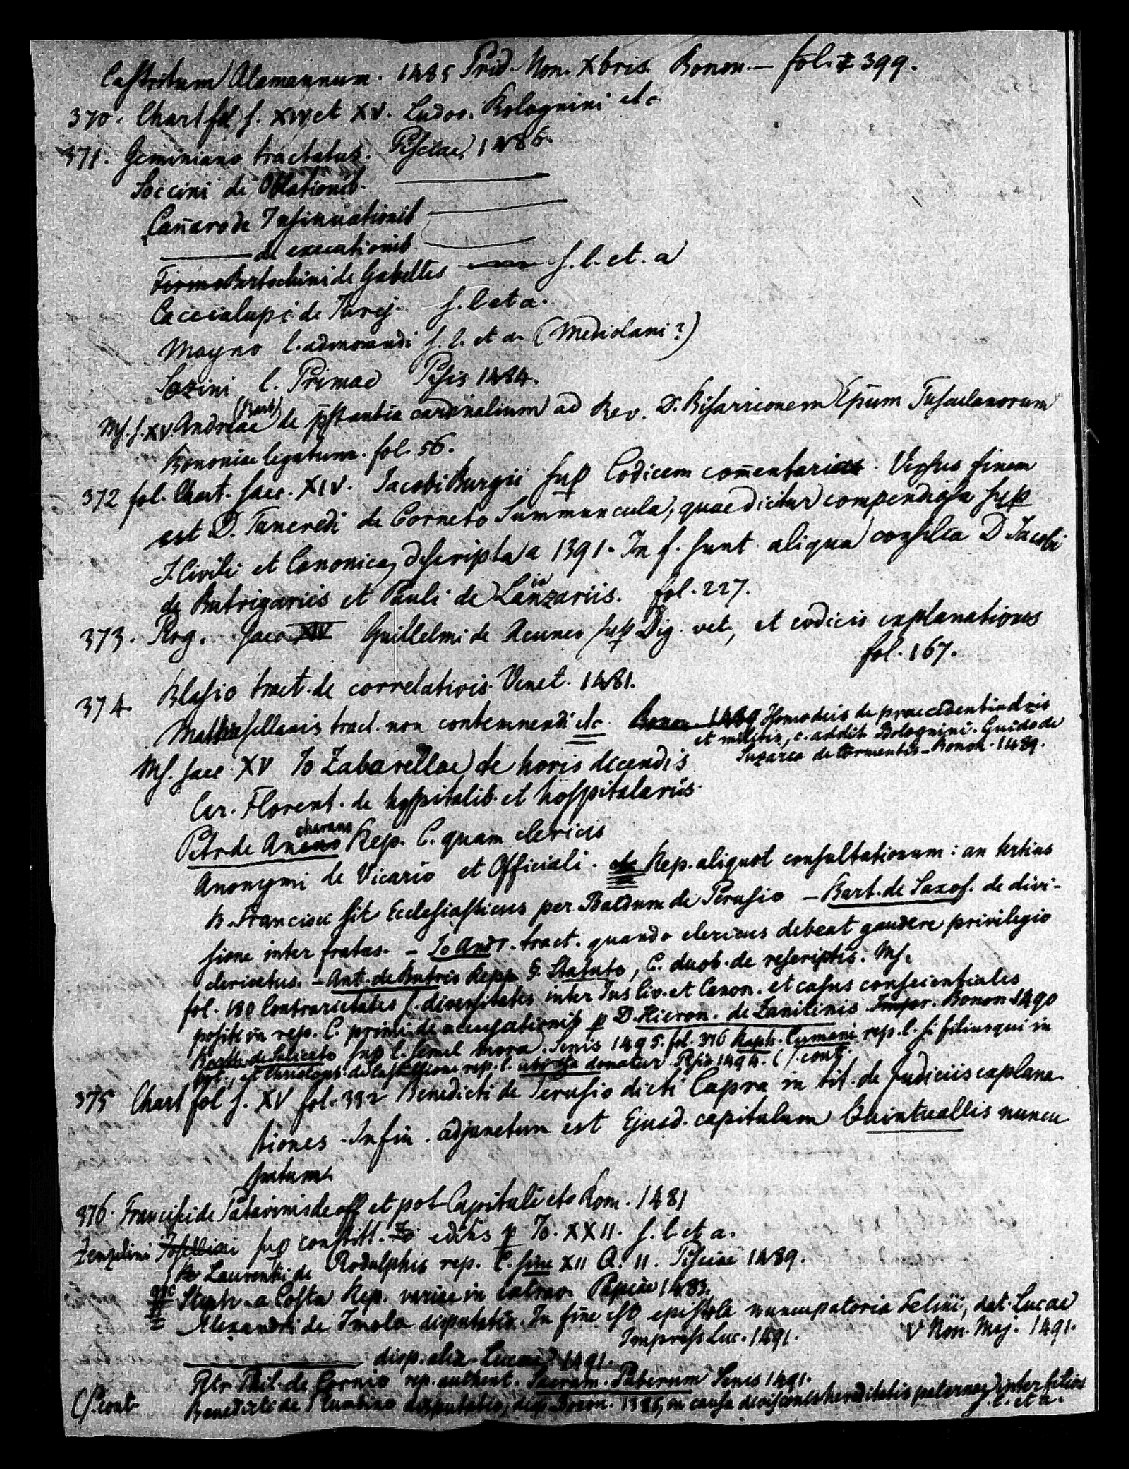 Castritum Alamannum. 1485 Prid. Non. Xbris Bonon. — fol. 399.
370. Chart fol s. XIV et XV. Ludov. Bolognini etc
371. Geminiano tractatus. Pisciae, 1486.
Soccini de Oblationib.
Cañaro de Insinuationib
——— de executionib
Firmo Bertochini de Gabellis s. l. et. a
Caccialupi de s. l. et a.
Mayno l. admonendi s. l. et a. (Mediolani?)
Sozini l. Primae Pisis 1484.
Ms. s. XV. Andreae (Barb) de pstantia cardinalium ad Rev. D. Bisarrionem Epum Tusculanorum
Bononiae legatum. fol. 56.
372 fol. Chart. saec. XIV. Jacobi Burgii sup Codicem comentarius. Versus finem
est D. Tancredi de Corneto Summuncula, quae dicitur compendiosa sup
J Civili et Canonica, descripta a 1391. In f. sunt aliqua consilia D Jacobi
de Butrigariis et Pauli de Lanzariis. fol. 227.
373. Reg. saec XIV Guillelmi de Acuneo sup Dig. vet, et codicis explanationes
fol. 167.
374 Blasio tract. de correlativis. Venet. 1481.
Matthesellanis tract. non contemnendi etc. Bonon. 1489 Homodeis de praecedentia dris
et militis, c. addit Bolognini. Guido de
Suzarea de tormentis Bonon. 1489.
Ms. saec. XV Jo Zabarellae de horis dicendis
Car. Florent. de hospitalib. et hospitalariis.
Petr de Ancharano Rep. C. quam clericis
Anonymi de Vicario et Officiali. etc Rep. aliquot consultationum: an tertius
h. Francisci sit Ecclesiasticus per Baldum de Perusio — Bart. de Saxof. de divi-
sione inter fratres. — Jo Andr. tract. quando clericus debeat gaudere privilegio
clericatus. — Ant. de Butrio Repp § Statuto, C. duob. de rescriptis. Ms.
fol. 180 Contrarietates s. diversitates inter Jus Civ. et Canon. et casus conscientiales
positi in rep. C primi de accusationib p D. Hieron. de Zanitinis Impr. Bonon. 1490
de Saliceto sup l. semel mora. Senis 1495. fol. 376 Raph. Cumani rep. l. si filius qui in
et Christoph. de Castellione rep. l. donatur Pisis 1494. (s. cont.
375 Chart fol s. XV fol. 332 Benedicti de Perusio dicti Capra in tit. de Judiciis explana-
tiones. In fin. adjunctum est Ejusd. capitulum Quintuallis nuncu
patum.
376. Francisci de Patavinis de off et pot Capituli etc Rom. 1481
Zenzelini sup constitt. edtis p Jo. XXII. s. l et a.
Laurentii de Rodulphis rep. C. sine XII Q. II. Pisciae 1489.
Steph. a Costa Rep. variae in extrav. Papiae 1483.
Alexandri de Imola disputatio. In fine est epistola nuncupatoria Felini, dat. Lucae
Impress Luc. 1491. V Non. Maj. 1491.
——— disp. alia Lucae 1491.
Petr Phil. de Cornio rep. authent. Sacram. Puberum Senis 1491.
(s. cont. Benedicti de Plumbino disputatio, disp Bonon. 1386, in causa divisionis hereditatis paternae inter filios
s. l. et a.